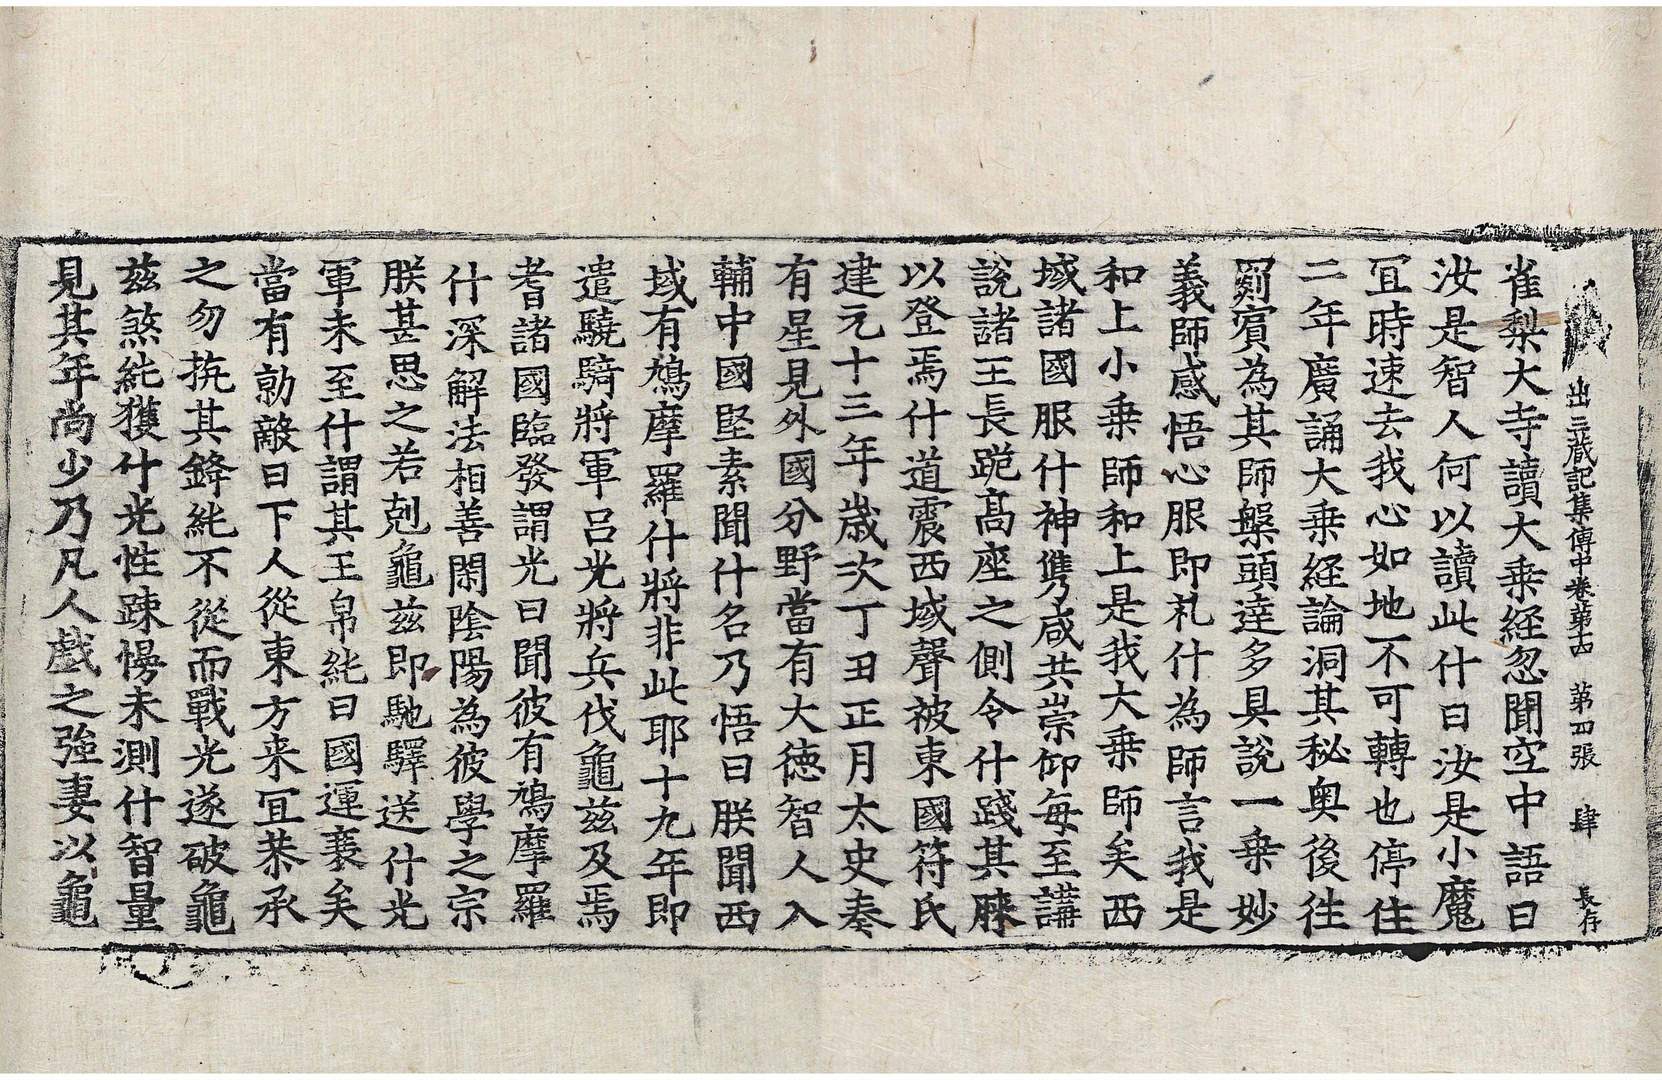 出三藏記集傳中卷第十四　第四張　肆　長存
雀梨大寺讀大乗経忽聞空中語曰
汝是智人何以讀此什曰汝是小魔
冝時速去我心如地不可轉也停住
二年廣誦大乗経論洞其秘奥後往
罽賓為其師槃頭達多具說一乗妙
義師感悟心服即礼什為師言我是
和上小乗師和上是我大乗師矣西
域諸國服什神雋咸共崇仰每至講
說諸王長跪髙座之側令什踐其膝
以登焉什道震西域聲被東國符氏
建元十三年歳次丁丑正月太史奏
有星見外國分野當有大徳智人入
輔中國堅素聞什名乃悟曰朕聞西
域有鳩摩羅什將非此耶十九年即
遣驍騎將軍呂光將兵伐龜茲及焉
耆諸國臨發謂光曰聞彼有鳩摩羅
什深解法相善閑隂陽為彼學之宗
朕甚思之若剋龜茲即馳驛送什光
軍未至什謂其王帛純曰國運衰矣
當有勍敵日下人從東方来冝恭承
之勿抗其鋒純不從而戰光遂破龜
茲煞純獲什光性踈慢未測什智量
見其年尚少乃凡人戲之強妻以龜